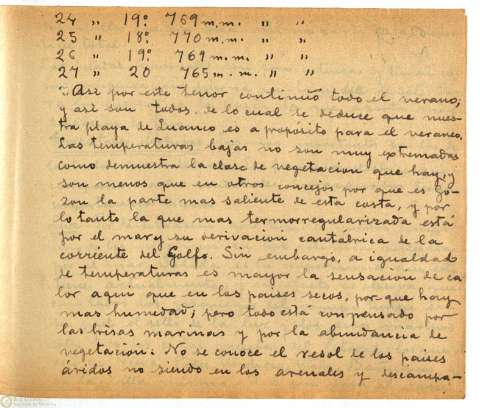 24 " 19º 769 m.m. " "
25 " 18º 770 m.m. " "
26 " 19º 769 m.m. " "
27 " 20 765 m.m. " "
Así por este tenor continuó todo el verano;
y así son todos. de lo cual se deduce que nues-
tra playa de Luanco es a propósito para el veraneo.
Las temperaturas bajas no son muy extremadas
como demuestra la clase de vegetación que hay, y
son menos que en otros concejos por que es Go-
zon la parte mas saliente de esta costa, y por
lo tanto la que mas termorregularizada está
por el mar y su derivacion cantábrica de la
corriente del Golfo. Sin embargo, a igualdad
de temperaturas es mayor la sensación de ca-
lor aqui que en los paises secos, por que hay
mas humedad; pero todo está conpensado por
las brisas marinas y por la abundancia de
vegetación. No se conoce el resol de los paises
áridos no siendo en los arenales y descampa-